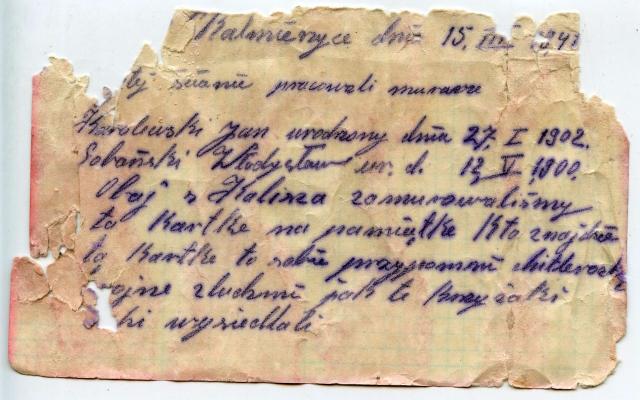 Kalmierzyce dnia 15. VII 1941
tej ścianie pracowali murarze
Karolewski Jan urodzony dnia 27. I 1902.
Sobański Władysław ur. d. 12. V 1900.
Obaj z Kalisza zamurowaliśmy
tą kartkę na pamiątkę Kto znajdzie
tą kartkę to sobie przypomni
jak te krzyżaki
wysiedlali